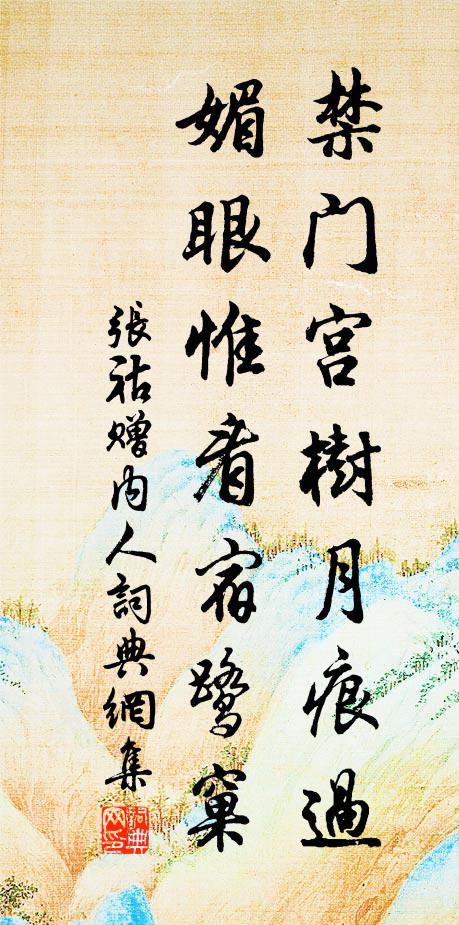 禁门宫樹月痕過
媚眼惟看宿鷺窠
張祜贈内人詞典網集
詞典